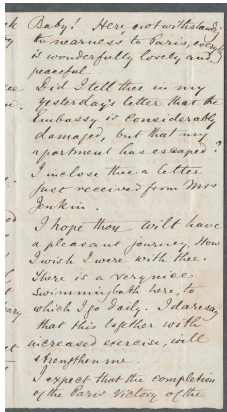 Baby! Here, notwithstanding
the nearness to Paris, everything
is wonderfully lovely and
peaceful.
Did I tell thee in my
yesterday's letter that the
Embassy is considerably
damaged, but that my
apartment has escaped?
I inclose thee a letter
just received from Mrs
Jenkin.
I hope thou wilt have
a pleasant journey. How
I wish I were with thee.
There is a very nice
swimming bath here, to
which I go daily. I daresay
that this together with
increased exercise, will
strengthen me.
I expect that the completion
of the Paris Victory of the